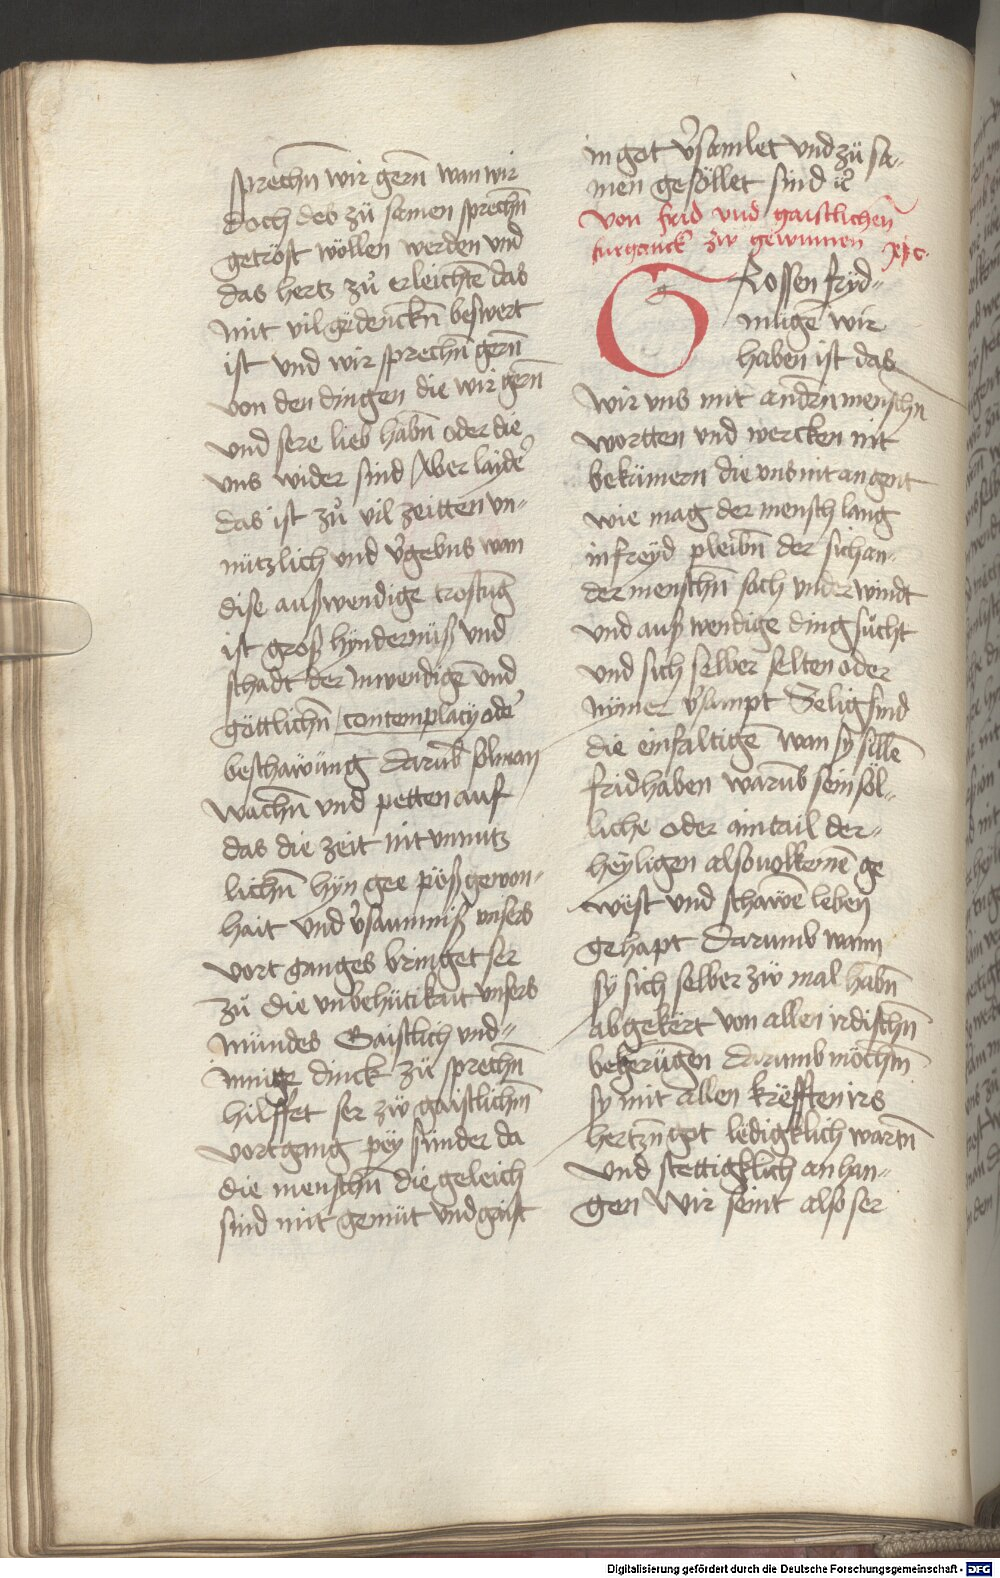 sprechn̄ wir gern̄ wan wir
doch deb zü samen sprechn̄
getröst wöllen werden vnd
das hertz zů erleichte das
mit vil gedenckn̄ beswert
ist vnd wir sprechn̄ gern̄
von den dingen die wir gern̄
vnd sere lieb habn̄ oder die
vns wider sind Aber layder
das ist zů vil zeitten vn-
nützlich vnd v̓gebns wan
dise außwendige trostūg
ist groß hyndernüß vnd
schadt der Inwendigē vnd
göttlichn̄ contemplacy ode͛
beschawūng darūb sol man
wachn̄ vnd petten auf
das die zeit nit vnnutz
lichn̄ hyn gee pöß gewon-
hait vnd v̓saumniß vnsers
vort ganges bringet ser
zů die vnbehütikait vnsers
mundes Gaistlich vnd-
innige dinck zü sprechn̄
hilffet ser zü gaistlichm̄
vortgang pey sunder da
die menschn̄ die geleich
sind mit gemüt vnd gaist
in got v̓samlet vnd zü sa-
men gesöllet sind ꝛc̄
von frid vnd gaistlichen̄
furganck zw gewinnen xj c.
Grossen fryd-
mügē wir
haben ist das
wir vns mit andrn̄ menschn̄
wortten vnd wercken nit
bekümern die vns nit an gent
wie mag der mensch lang
in freyd pleibn̄ der sich an-
der menschn̄ sach vnderwindt
vnd auß wendige ding sůcht
vnd sich selber selten oder
nymer v̓sampt Selig sind
die einfaltigē wan sy sullē
frid haben warūb sein söl-
liche oder ain tail der-
heyligen also volkemē ge
west vnd schawē leben
gehapt Darumb wann
sy sich selber zw mal habn̄
abgekert von allen irdischn̄
begerūgen darumb möchtn̄
sy mit allen krëfften irs
hertzn̄ got ledigklich wartn̄
vnd stettigklich an han-
gen Wir seint also ser
Digitalisierung gefördert durch die Deutsche Forschungsgemeinschaft - DFG